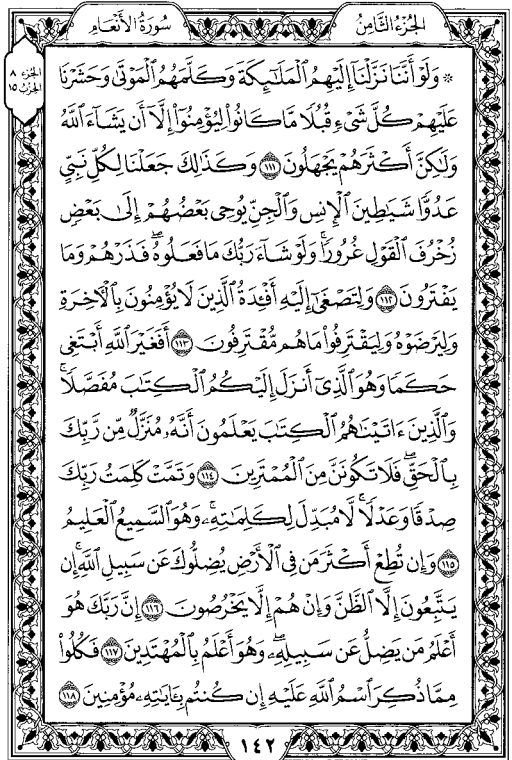 سُورَةُ الأَنْعَامِ
الجُزءُ الثَّامِنُ
الجزء ٨
الحزب ١٥
۞ وَلَوْ أَنَّنَا نَزَّلْنَآ إِلَيْهِمُ ٱلْمَلَٰٓئِكَةَ وَكَلَّمَهُمُ ٱلْمَوْتَىٰ وَحَشَرْنَا
عَلَيْهِمْ كُلَّ شَىْءٍ قُبُلًا مَّا كَانُوا۟ لِيُؤْمِنُوٓا۟ إِلَّآ أَن يَشَآءَ ٱللَّهُ
وَلَٰكِنَّ أَكْثَرَهُمْ يَجْهَلُونَ ١١١ وَكَذَٰلِكَ جَعَلْنَا لِكُلِّ نَبِىٍّ
عَدُوًّا شَيَٰطِينَ ٱلْإِنسِ وَٱلْجِنِّ يُوحِى بَعْضُهُمْ إِلَىٰ بَعْضٍ
زُخْرُفَ ٱلْقَوْلِ غُرُورًا ۚ وَلَوْ شَآءَ رَبُّكَ مَا فَعَلُوهُ ۖ فَذَرْهُمْ وَمَا
يَفْتَرُونَ ١١٢ وَلِتَصْغَىٰٓ إِلَيْهِ أَفْـِٔدَةُ ٱلَّذِينَ لَا يُؤْمِنُونَ بِٱلْءَاخِرَةِ
وَلِيَرْضَوْهُ وَلِيَقْتَرِفُوا۟ مَا هُم مُّقْتَرِفُونَ ١١٣ أَفَغَيْرَ ٱللَّهِ أَبْتَغِى
حَكَمًا وَهُوَ ٱلَّذِىٓ أَنزَلَ إِلَيْكُمُ ٱلْكِتَٰبَ مُفَصَّلًا ۚ
وَٱلَّذِينَ ءَاتَيْنَٰهُمُ ٱلْكِتَٰبَ يَعْلَمُونَ أَنَّهُۥ مُنَزَّلٌ مِّن رَّبِّكَ
بِٱلْحَقِّ ۖ فَلَا تَكُونَنَّ مِنَ ٱلْمُمْتَرِينَ ١١٤ وَتَمَّتْ كَلِمَتُ رَبِّكَ
صِدْقًا وَعَدْلًا ۚ لَّا مُبَدِّلَ لِكَلِمَٰتِهِۦ ۚ وَهُوَ ٱلسَّمِيعُ ٱلْعَلِيمُ
١١٥ وَإِن تُطِعْ أَكْثَرَ مَن فِى ٱلْأَرْضِ يُضِلُّوكَ عَن سَبِيلِ ٱللَّهِ ۚ إِن
يَتَّبِعُونَ إِلَّا ٱلظَّنَّ وَإِنْ هُمْ إِلَّا يَخْرُصُونَ ١١٦ إِنَّ رَبَّكَ هُوَ
أَعْلَمُ مَن يَضِلُّ عَن سَبِيلِهِۦ ۖ وَهُوَ أَعْلَمُ بِٱلْمُهْتَدِينَ ١١٧ فَكُلُوا۟
مِمَّا ذُكِرَ ٱسْمُ ٱللَّهِ عَلَيْهِ إِن كُنتُم بِـَٔايَٰتِهِۦ مُؤْمِنِينَ ١١٨
١٤٢